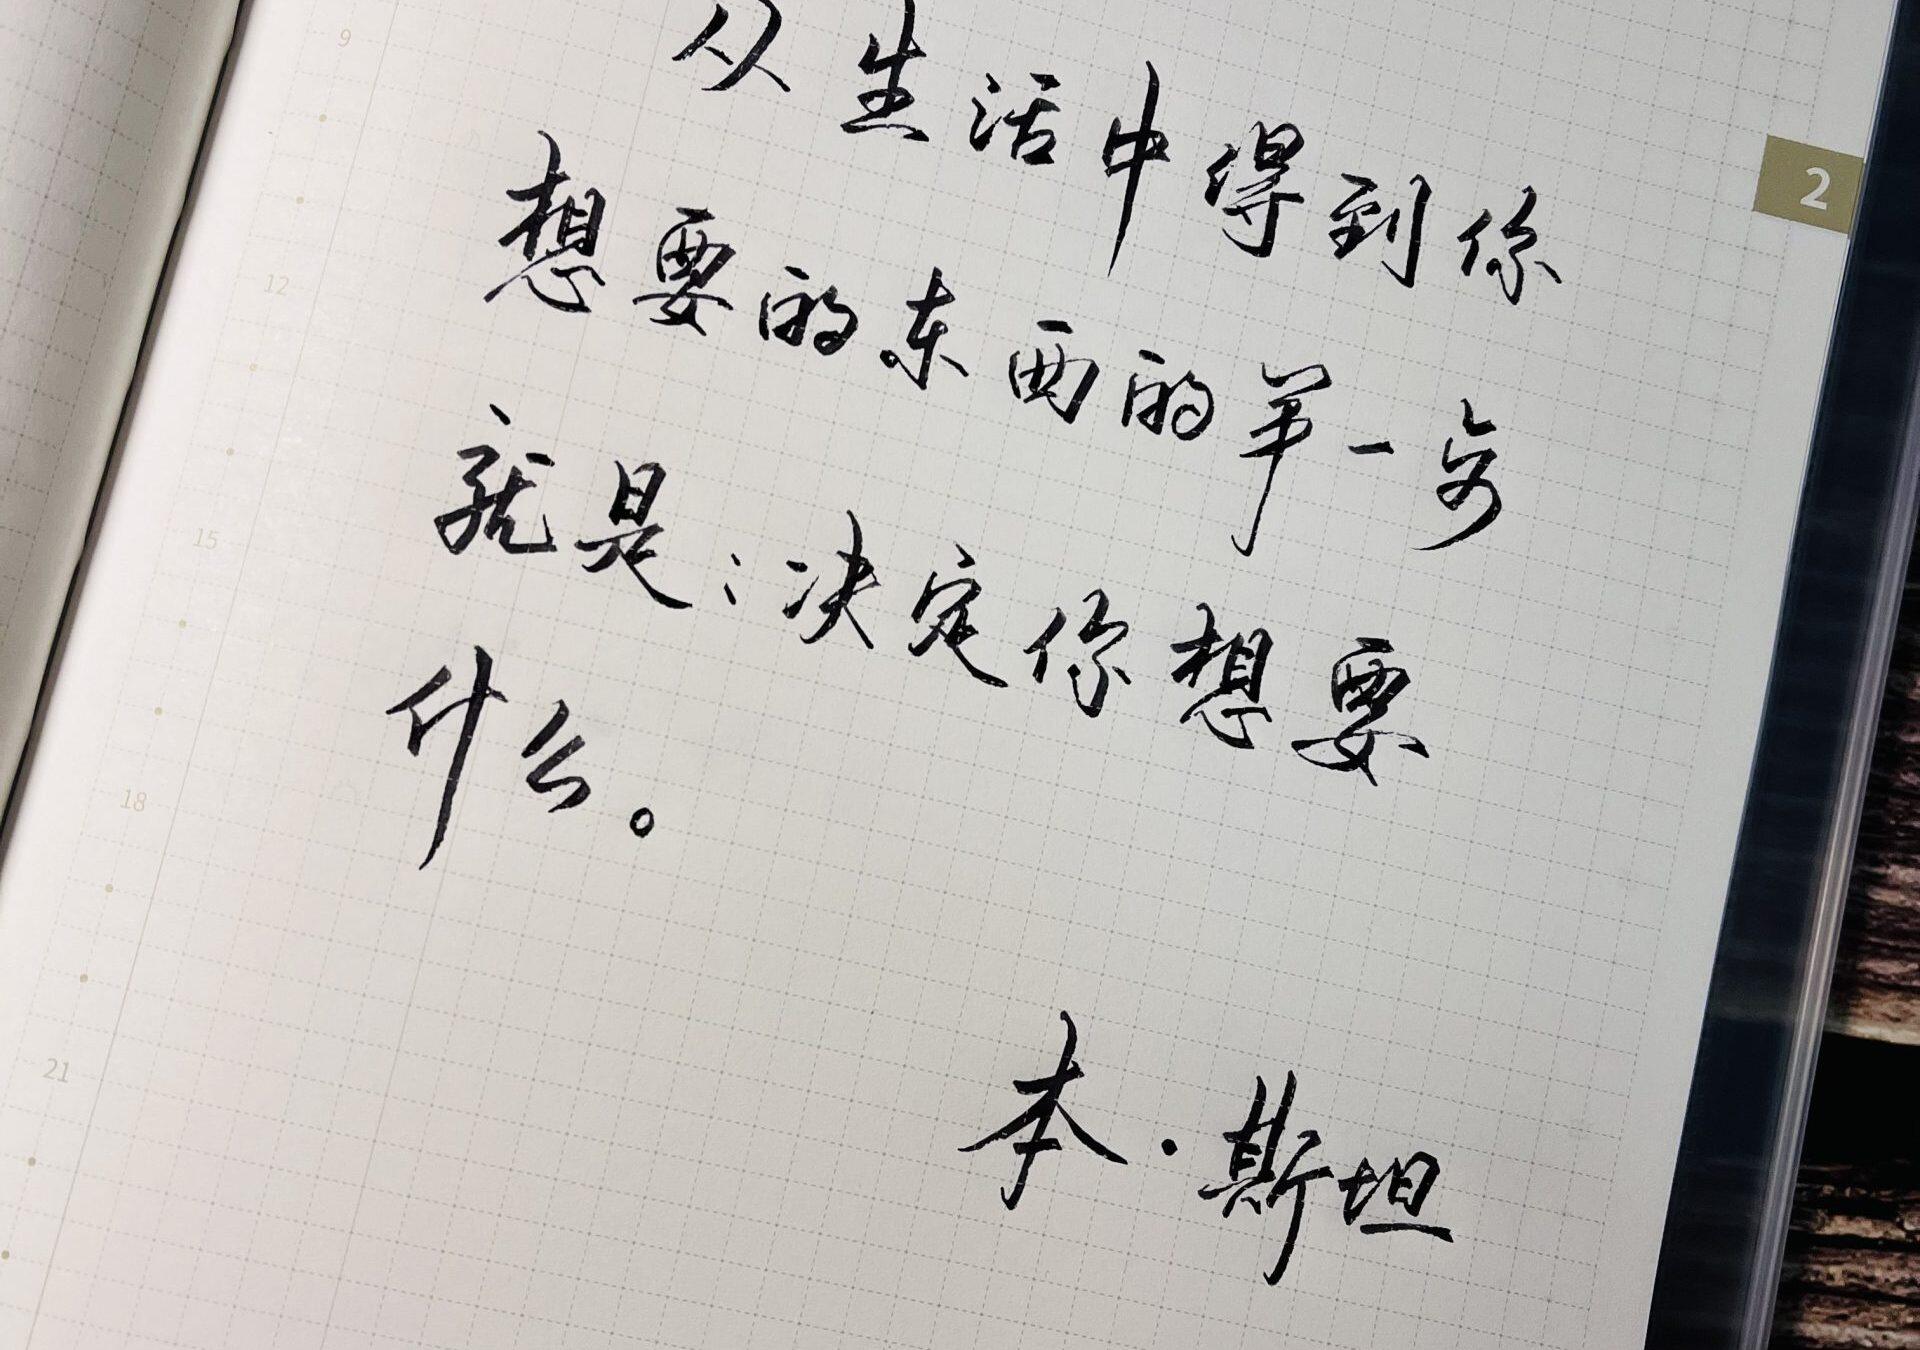 从生活中得到你
想要的东西的第一步
就是:决定你想要
什么。
本·斯坦
2
9
12
15
18
21